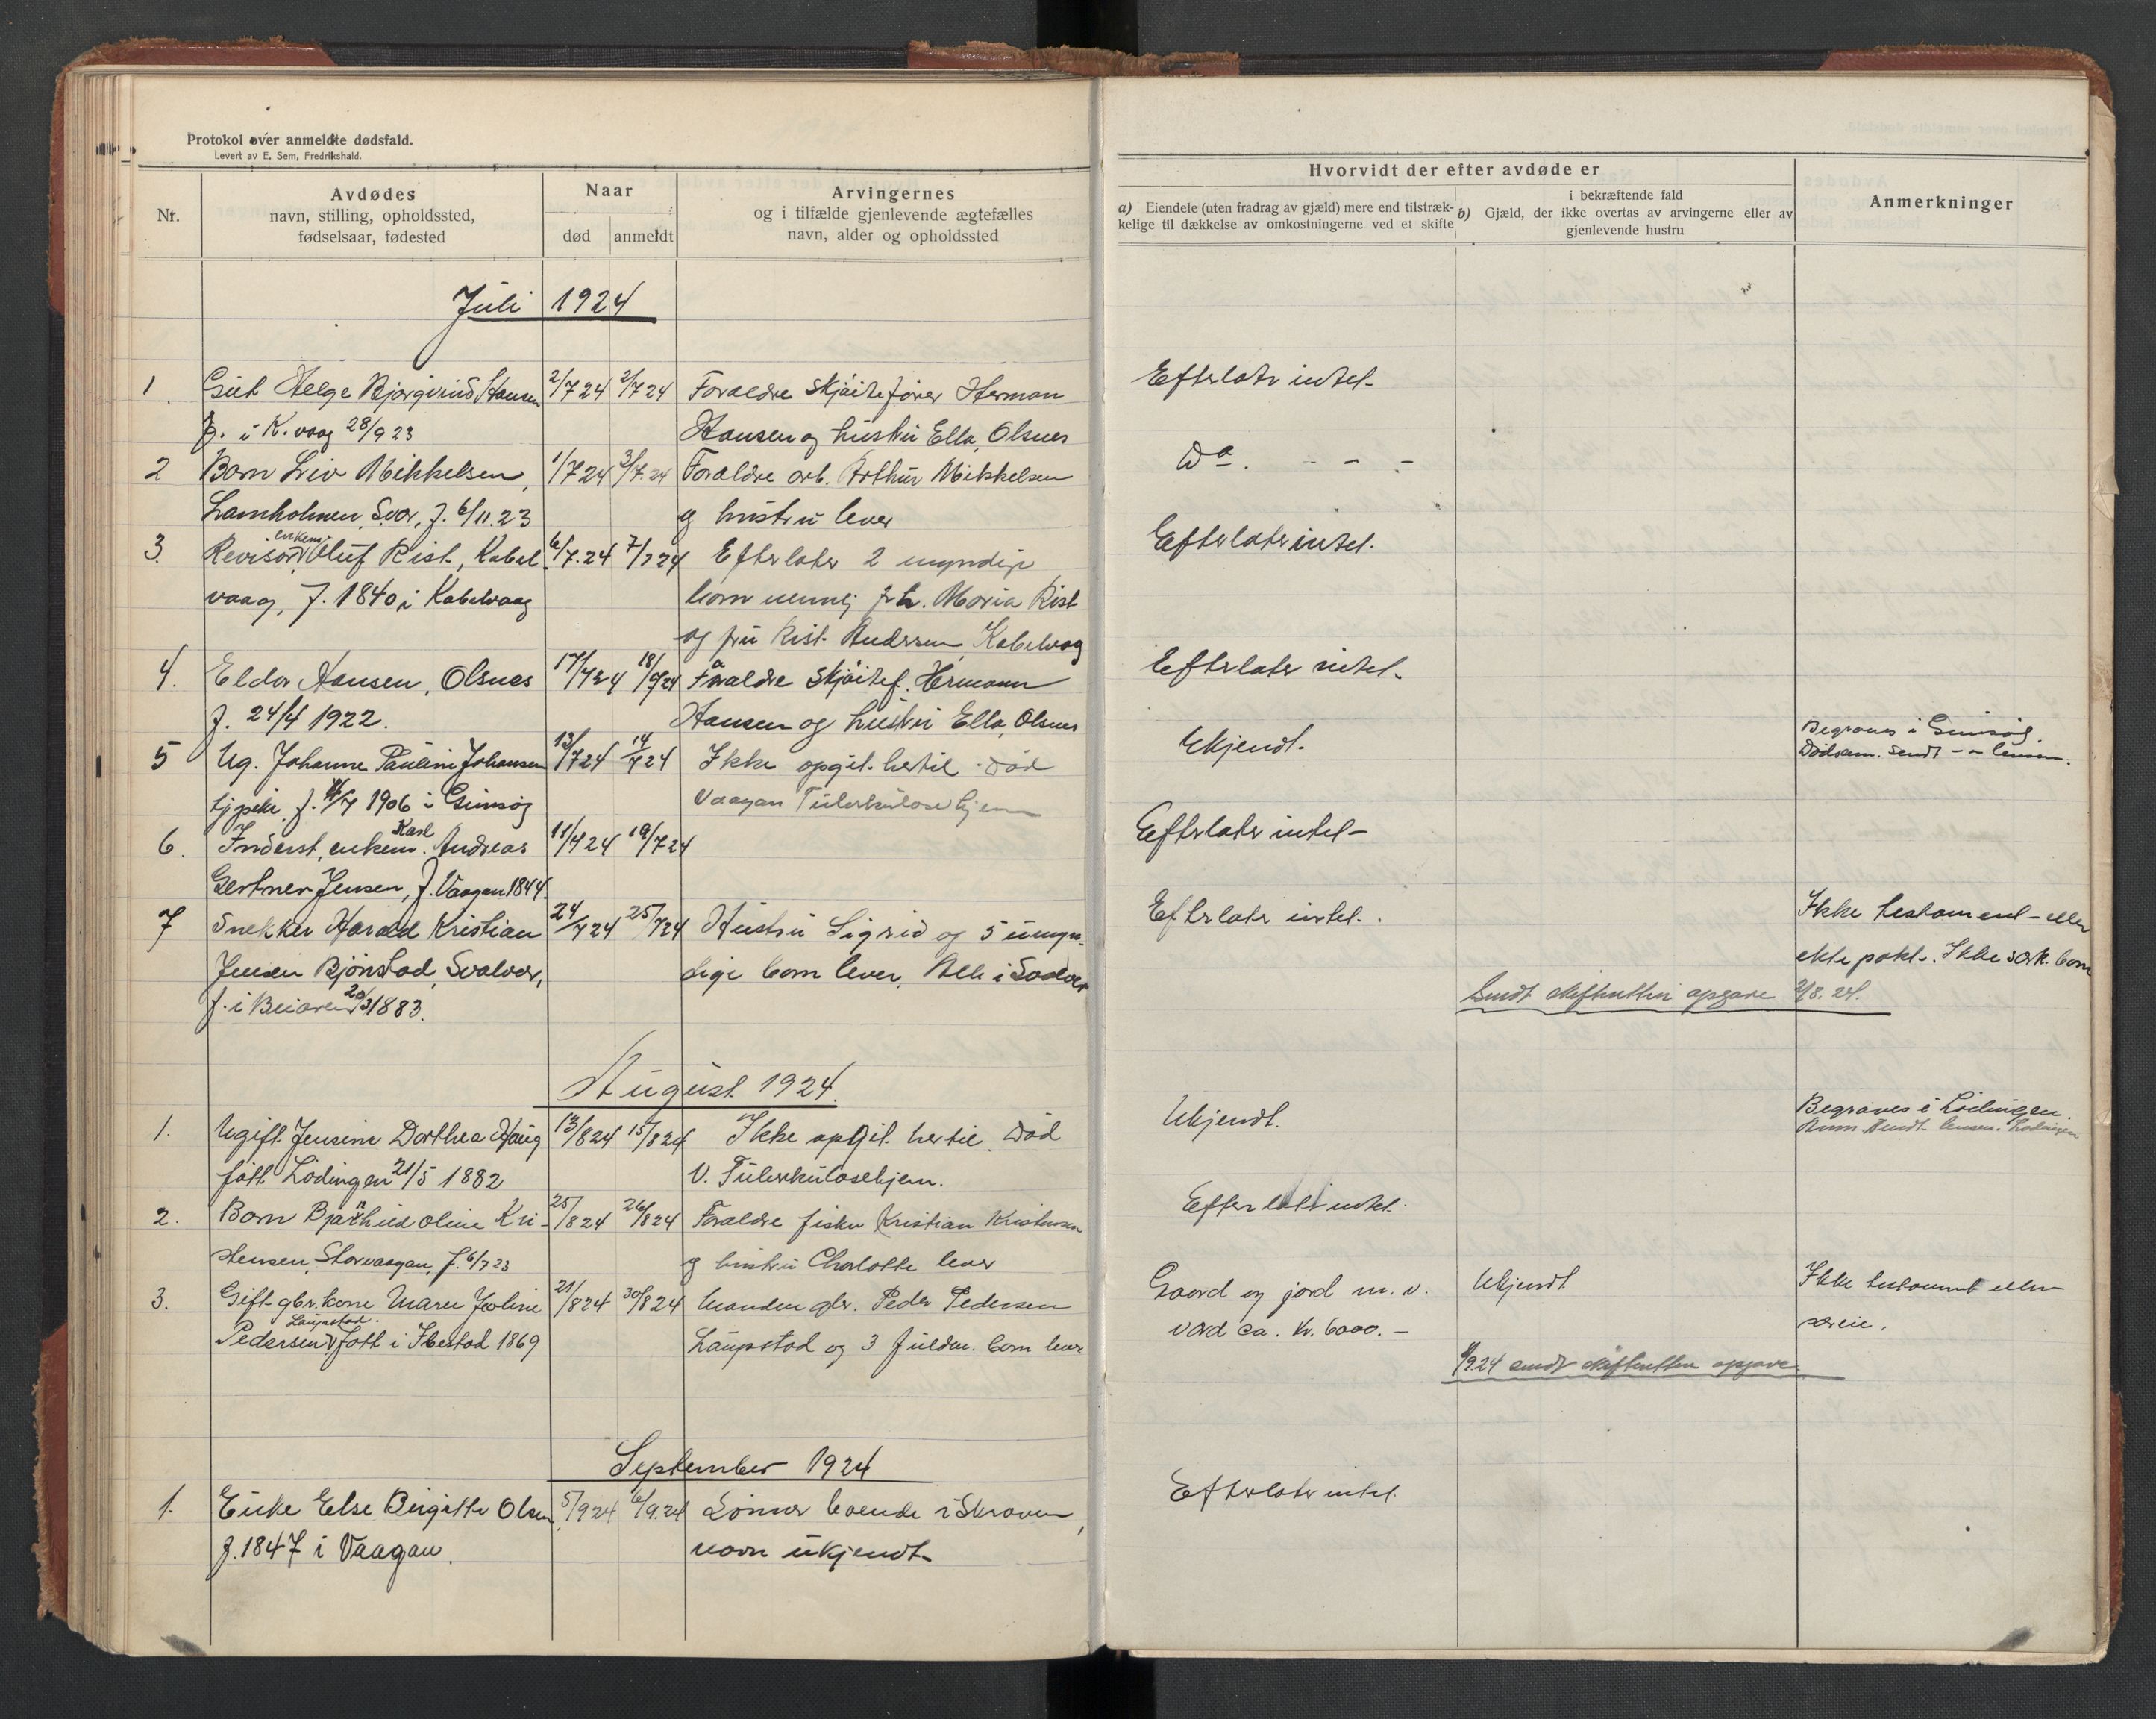 Protokol over anmeldte dødsfald.
Levert av E. Sem, Fredrikshald.
Nr.
Avdødes
navn, stilling, opholdssted,
fødselsaar, fødested
Naar
død
anmeldt
Arvingernes
og i tilfælde gjenlevende ægtefælles
navn, alder og opholdssted
Hvorvidt der efter avdøde er
a) Eiendele (uten fradrag av gjæld) mere end tilstræk-
kelige til dækkelse av omkostningerne ved et skifte
i bekræftende fald
b) Gjæld, der ikke overtas av arvingerne eller av
gjenlevende hustru
Anmerkninger
Juli 1924
1 Gut Helge Bjørgvind Hansen 2/7 24 2/7 24 Foraldre skjøitefører Herman Efterlatr intel.
f. i K.vaag 28/9 23 Hansen og hustru Ella, Olsnes
2 Barn Liv Mikkelsen, 1/7 24 3/7.24 Foraldre arb. Arthur Mikkelsen Do. - - -
Lamholmen, Svor, f. 6/11.23 og hustru lever
3. Revisor enkem. Oluf Rist, Kabel- 6/7.24 7/7 24 Efterlater 2 myndige Efterlater intel.
vaag, f. 1840 i Kabelvaag barn nemlig frk. Maria Rist
og fru Rist Andersen, Kabelvag
4. Eldor Hansen, Olsnes 17/7 24 18/7 24 Foraldre skjøitef. Hermann Efterlater intel.
f. 24/4 1922. Hansen og hustru Ella, Olsnes
5 Ug. Johanne Pauline Johansen 13/7 24 14/7 24 Ikke opgit hertil. Død Ukjendt. Begraves i Gimsøy.
tjpike, f. 1906 i Gimsøy Vaagan Tuberkulosehjem Dødsanm. sendt - " - lensm.
6. Inderst, enkem. Karl Andreas 11/7 24 19/7 24 Efterlater intel -
Gertner Jensen, f. Vaagan 1844
7 Snekker Harald Kristian 24/7 24 25/7 24 Hustru Sigrid og 5 umyn- Efterlater intel. Ikke testament - eller
Jensen Bjönstad, Svolvær, dige barn lever, Alle i Svolvær ektepakt. Ikke særk. barn
f. i Beiaren 20/3 1883. Sendt skifteretten opgave 2/8. 24.
August 1924.
1. Ugift Jensine Dorthea Haug 13/8 24 15/8 24 Ikke opgit hertil. Død Ukjendt. Begraves i Lødingen.
født Lødingen 21/5 1882 V. Tuberkulosehjem. Anm. sendt lensm. Lødingen
2. Barn Oline Kri- 25/8 24 26/8 24 Foraldre fisker Kristian Kristensen Efterlatt intel.
stensen, Storvaagan, f. 6/7 23 og hustru Charlotte lever
3. Gift gbr.kone Maren Joline 21/8 24 30/8 24 Manden gbr. Peder Pedersen Gaard og jord m. v. Ukjendt Ikke testament eller
Pedersen, Laupstad. født i Ibestad 1869 Laupstad og 3 fuldm. barn lever værd ca. Kr. 6000. - særeie.
9.24 sendt skifteretten opgave
September 1924
1. Enke Else Birgitte Olsen 5/9 24 6/9.24 Sönner boende i Skraaven, Efterlater intel.
f. 1847 i Vaagan. navn ukjendt.